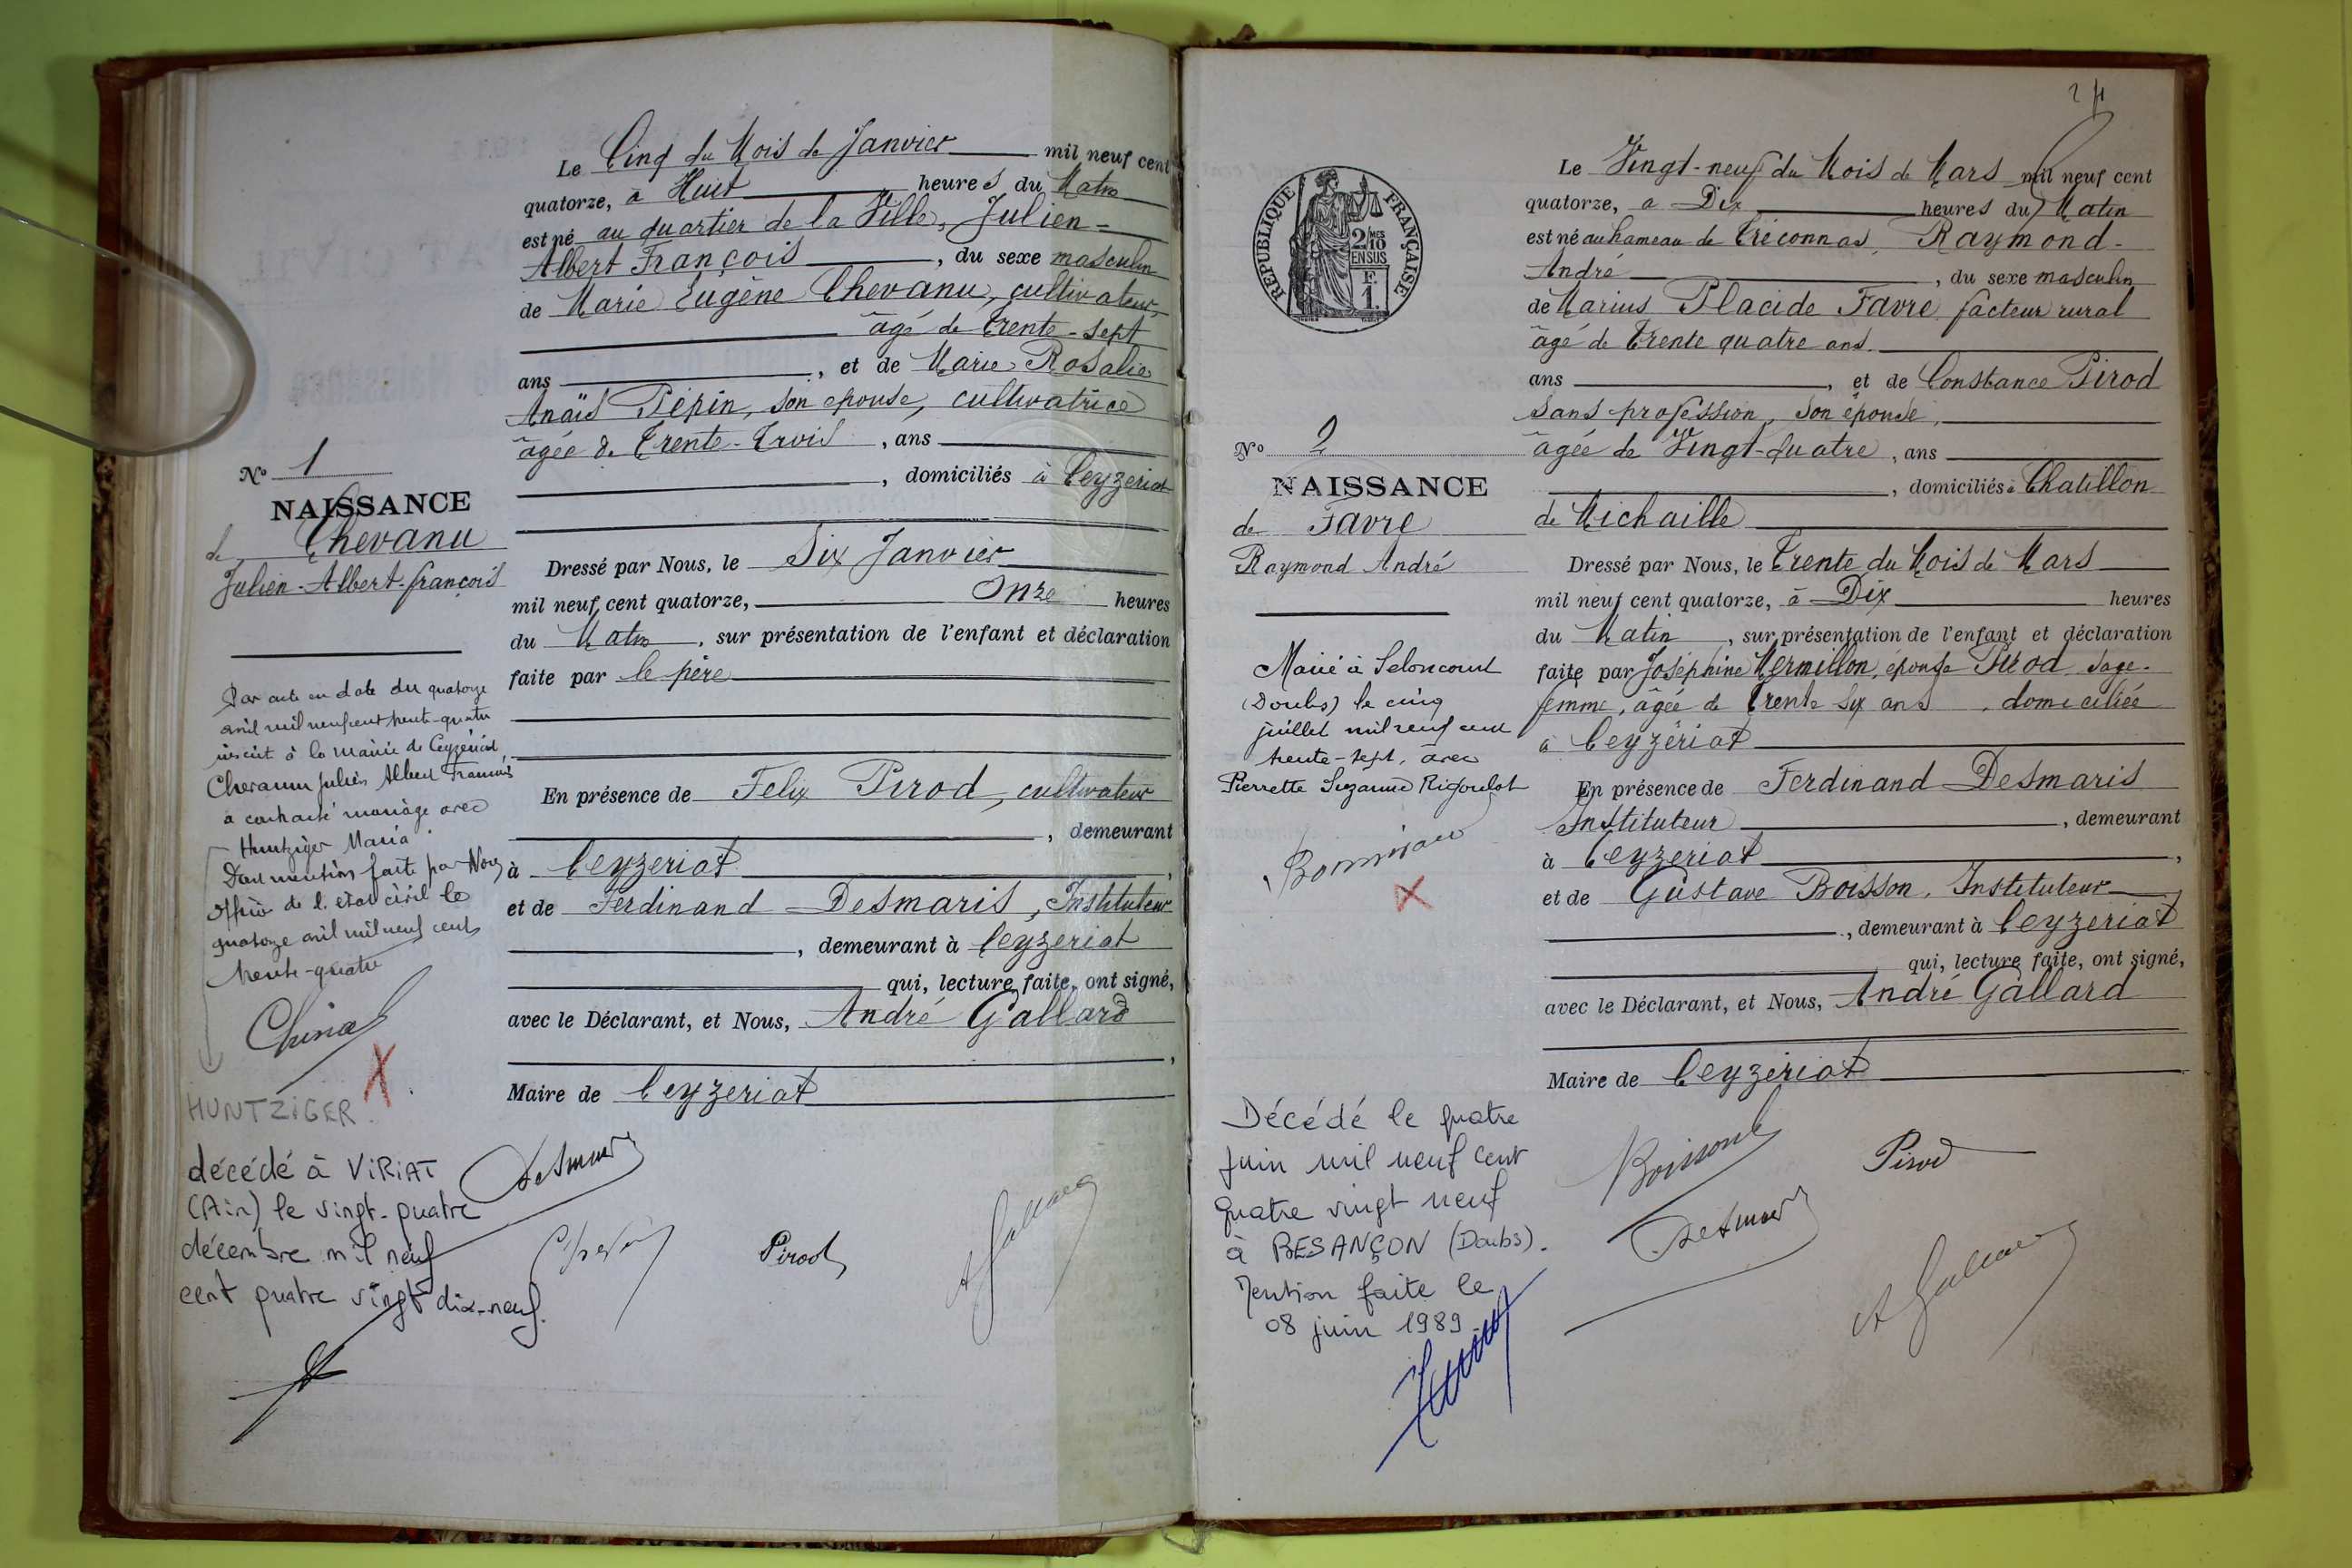 Le Cinq du Mois de Janvier mil neuf cent
quatorze, à Huit heures du Matin
est né au quartier de la Ville, Julien-
Albert François, du sexe masculin
de Marie Eugène Chevanu, cultivateur,
âgé de Trente-sept
ans, et de Marie Rosalie
Anaïs Pépin, son épouse, cultivatrice
âgée de Trente-Trois, ans
, domiciliés à Ceyzeriat
No 1
NAISSANCE
de Chevanu
Julien-Albert-françois
Dressé par Nous, le Six Janvier
mil neuf cent quatorze, Onze heures
du Matin, sur présentation de l'enfant et déclaration
faite par le père
En présence de Felix Pirod, cultivateur
, demeurant
à Ceyzeriat,
et de Ferdinand Desmaris, Instituteur
, demeurant à Ceyzeriat
qui, lecture faite, ont signé,
avec le Déclarant, et Nous, André Gallard
,
Maire de Ceyzeriat
Par acte en date du quatorze
avril mil neuf cent trente-quatre
inscrit à la mairie de Ceyzériat,
Chevanu Julien Albert François
a contracté mariage avec
Huntziger Maria
Dont mention faite par Nous
officier de l'état civil le
quatorze avril mil neuf cent
trente-quatre
HUNTZIGER
décédé à VIRIAT
(Ain) le vingt-quatre
décembre mil neuf
cent quatre vingt dix-neuf.
Desmaris
Pirod
A Gallard
24
RÉPUBLIQUE FRANÇAISE
2/10 MES
EN SUS
F.
1.
Le Vingt-neuf du Mois de Mars mil neuf cent
quatorze, à Dix heures du Matin
est né au hameau de Tréconnas, Raymond-
André, du sexe masculin
de Marius Placide Favre facteur rural
âgé de Trente quatre ans
ans, et de Constance Pirod
sans profession, son épouse,
âgée de Vingt-quatre, ans
, domiciliés à Chatillon
de Michaille
No 2
NAISSANCE
de Favre
Raymond André
Dressé par Nous, le Trente du Mois de Mars
mil neuf cent quatorze, à Dix heures
du Matin, sur présentation de l'enfant et déclaration
faite par Joséphine Mermillon, épouse Pirod sage-
femme, âgée de Trente six ans, domiciliée
à Ceyzériat
En présence de Ferdinand Desmaris
Instituteur, demeurant
à Ceyzeriat,
et de Gustave Boisson, Instituteur
, demeurant à Ceyzeriat
qui, lecture faite, ont signé,
avec le Déclarant, et Nous, André Gallard
Maire de Ceyzériat
Marié à Seloncourt
(Doubs) le cinq
juillet mil neuf cent
trente-sept, avec
Pierrette Suzanne Rigoulot
Décédé le quatre
juin mil neuf cent
quatre vingt neuf
à BESANÇON (Doubs).
Mention faite le
08 juin 1989.
Boisson
Pirod
Desmaris
A Gallard